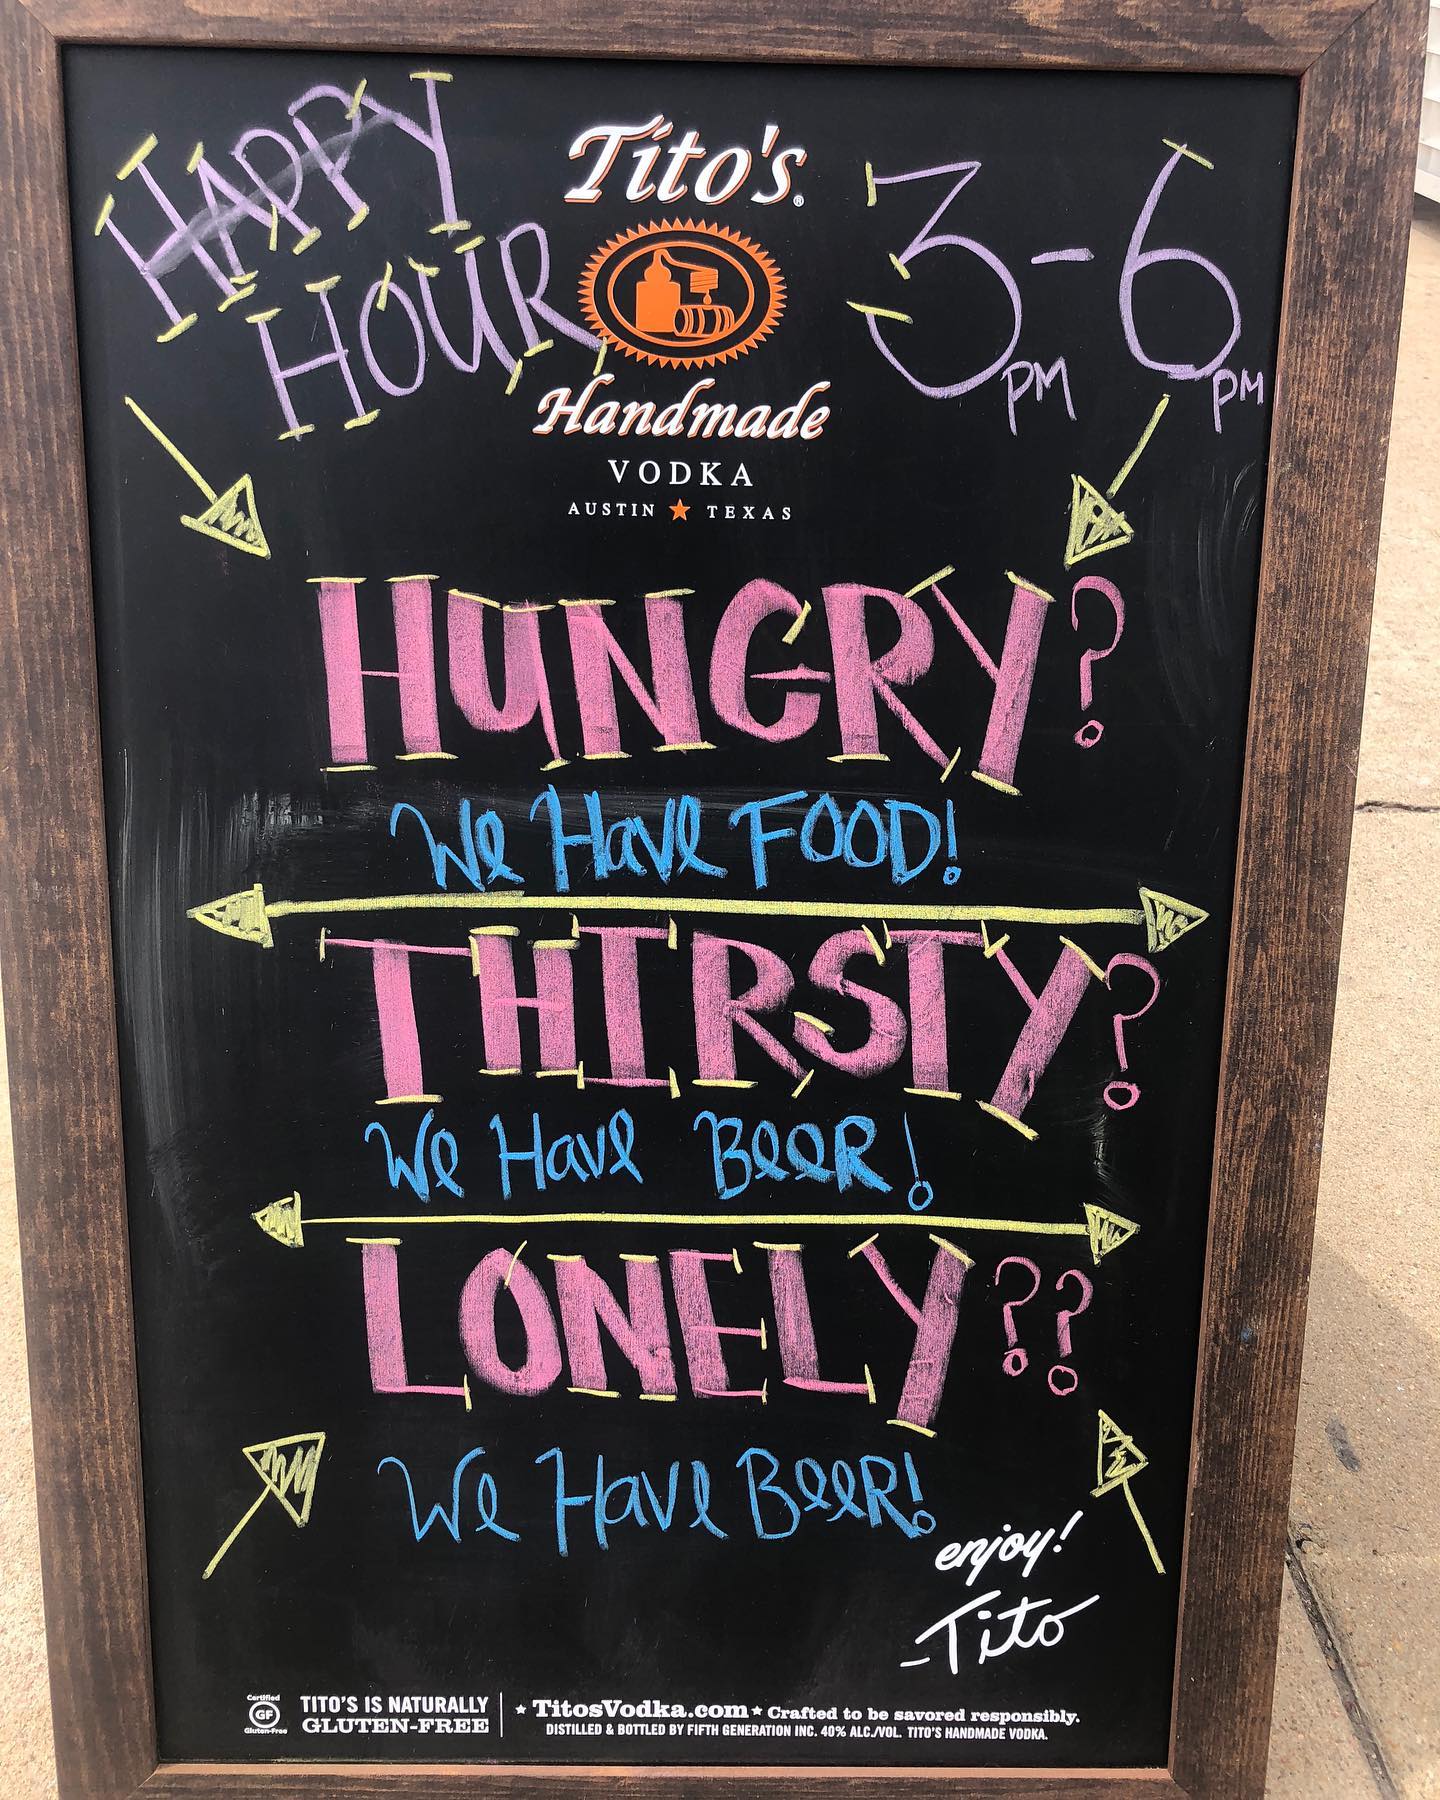 HAPPY
HOUR
Tito's®
Handmade
VODKA
AUSTIN ★ TEXAS
3PM - 6PM
HUNGRY?
We Have FOOD!
THIRSTY?
We Have BeeR!
LONELY??
We Have BeeR!
enjoy!
-Tito
Certified
GF
Gluten-Free
TITO'S IS NATURALLY
GLUTEN-FREE
★ TitosVodka.com ★ Crafted to be savored responsibly.
DISTILLED & BOTTLED BY FIFTH GENERATION INC. 40% ALC./VOL. TITO'S HANDMADE VODKA.